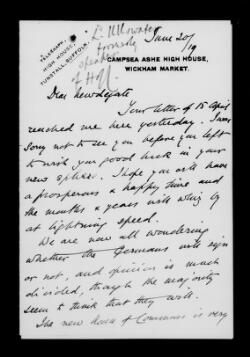 TELEGRAMS,
HIGH HOUSE,
TUNSTALL, SUFFOLK.
Ld Ullswater
formerly
speaker
of HofC.
June 20/19
CAMPSEA ASHE HIGH HOUSE,
WICKHAM MARKET.
Dear Newdegate
Your letter of 15 April
reached me here yesterday. I was
sorry not to see you before you left
to wish you good luck in your
new sphere. I hope you will have
a prosperous & happy time and
the months & years will whizz by
at lightning speed.
We are now all wondering
whether the Germans will sign
or not, and opinion is much
divided, though the majority
seem to think that they will.
The new House of Commons is very